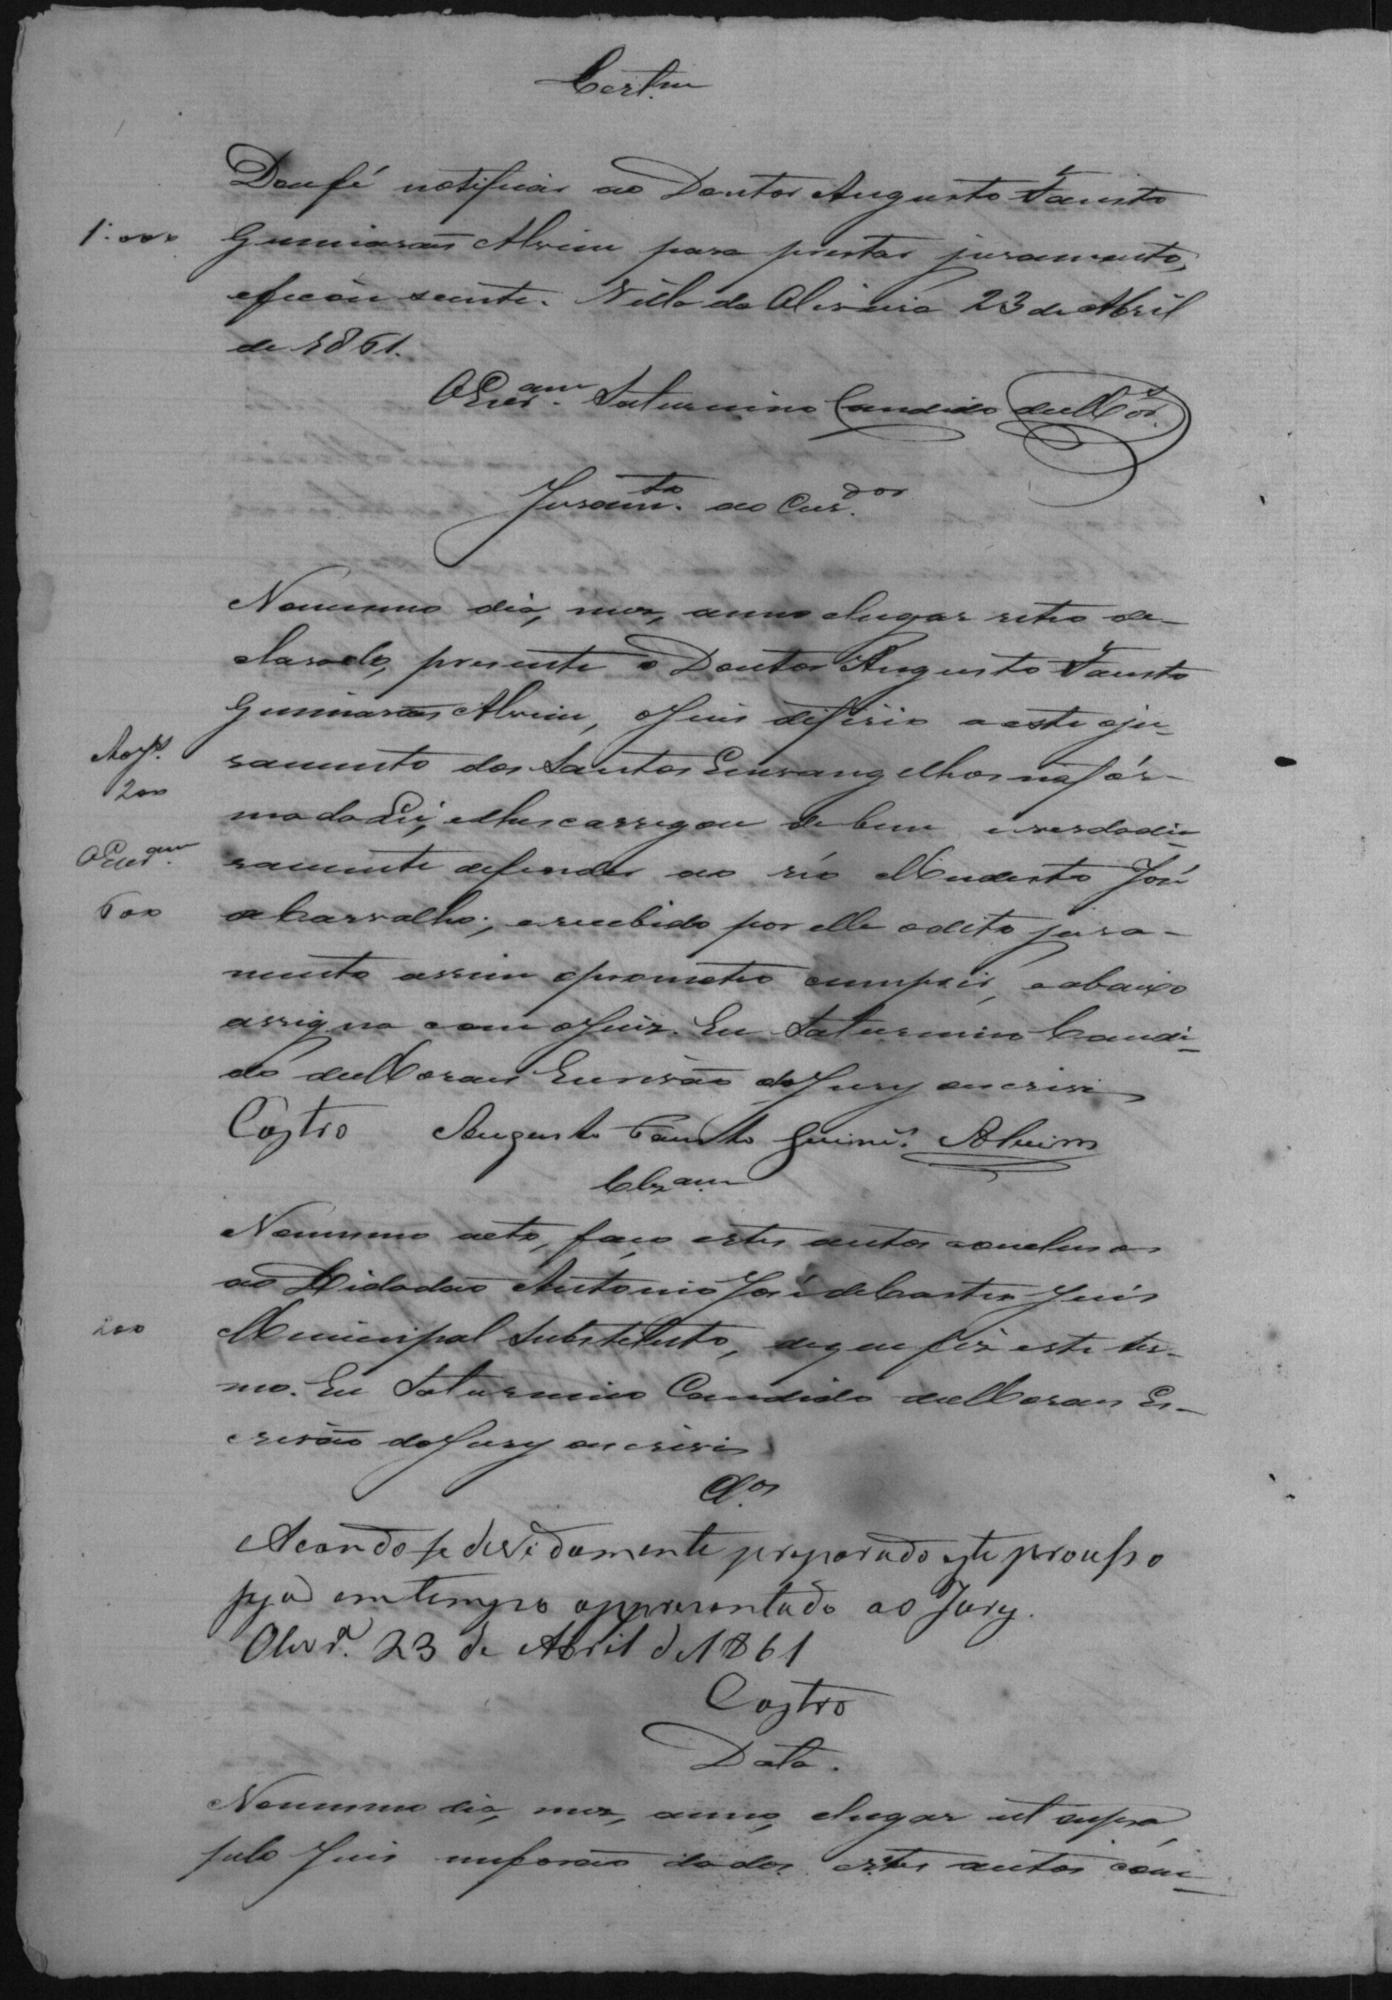 Certm
Doufé notificar ao Doutor Augusto Fausto
1:000
Guimarães Alvim para prestar juramento,
eficou sciente. Villa da Oliveira 23 de Abril
de 1861.
OEscram. Saturnino Candido de Mor.s
Juramto. ao Curdor.
Nomesmo dia, mez, anno elugar retro de-
clarado, presente o Doutor Augusto Fausto
Guimarães Alvim, oJuis diferio a este oju-
ramento dos Santos Euvangelhos nafór-
200
mada Lei, elhe encarregou de bem everdadei-
OEscram.
ramente defender ao réo Modesto José
600
deCarvalho; erecebido por elle odito jura-
mento assim oprometeo cumprir, eabaixo
assigna com oJuiz. Eu Saturnino Candi-
do de Moraes Escrivão doJury oescrivi
Castro Augusto Fausto Guimes. Alvim
Clzam.
Nomesmo acto, faço estes autos conclusos
ao Cidadão Antonio José deCastro Juis
200
Municipal Substituto, dequefiz este ter-
mo. Eu Saturnino Candido de Moraes Es-
crivão doJury oescrivi
Clos
Acandose devidamente preparado este processo
seja emtempo appresentado ao Jury.
Olivra. 23 de Abril de 1861
Castro
Data.
Nomesmo dia, mez, anno, elugar ut supra,
pelo Juis meforão dados estes autos com